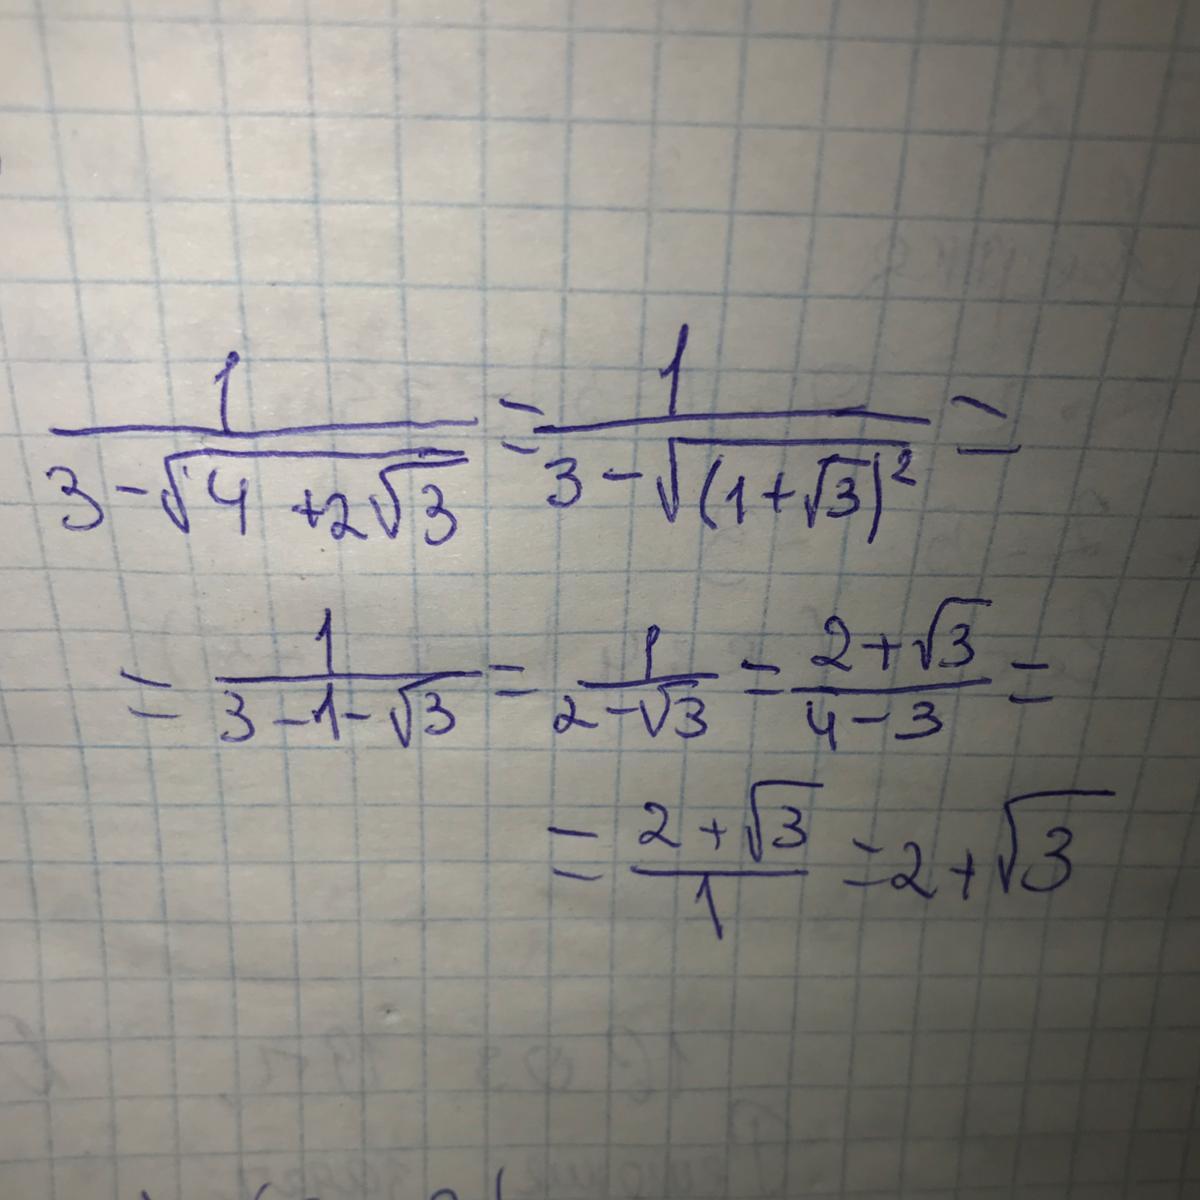 1/(3-√(4+2√3)) = 1/(3-√((1+√3)²)) =
= 1/(3-1-√3) = 1/(2-√3) = (2+√3)/(4-3) =
= (2+√3)/1 = 2+√3